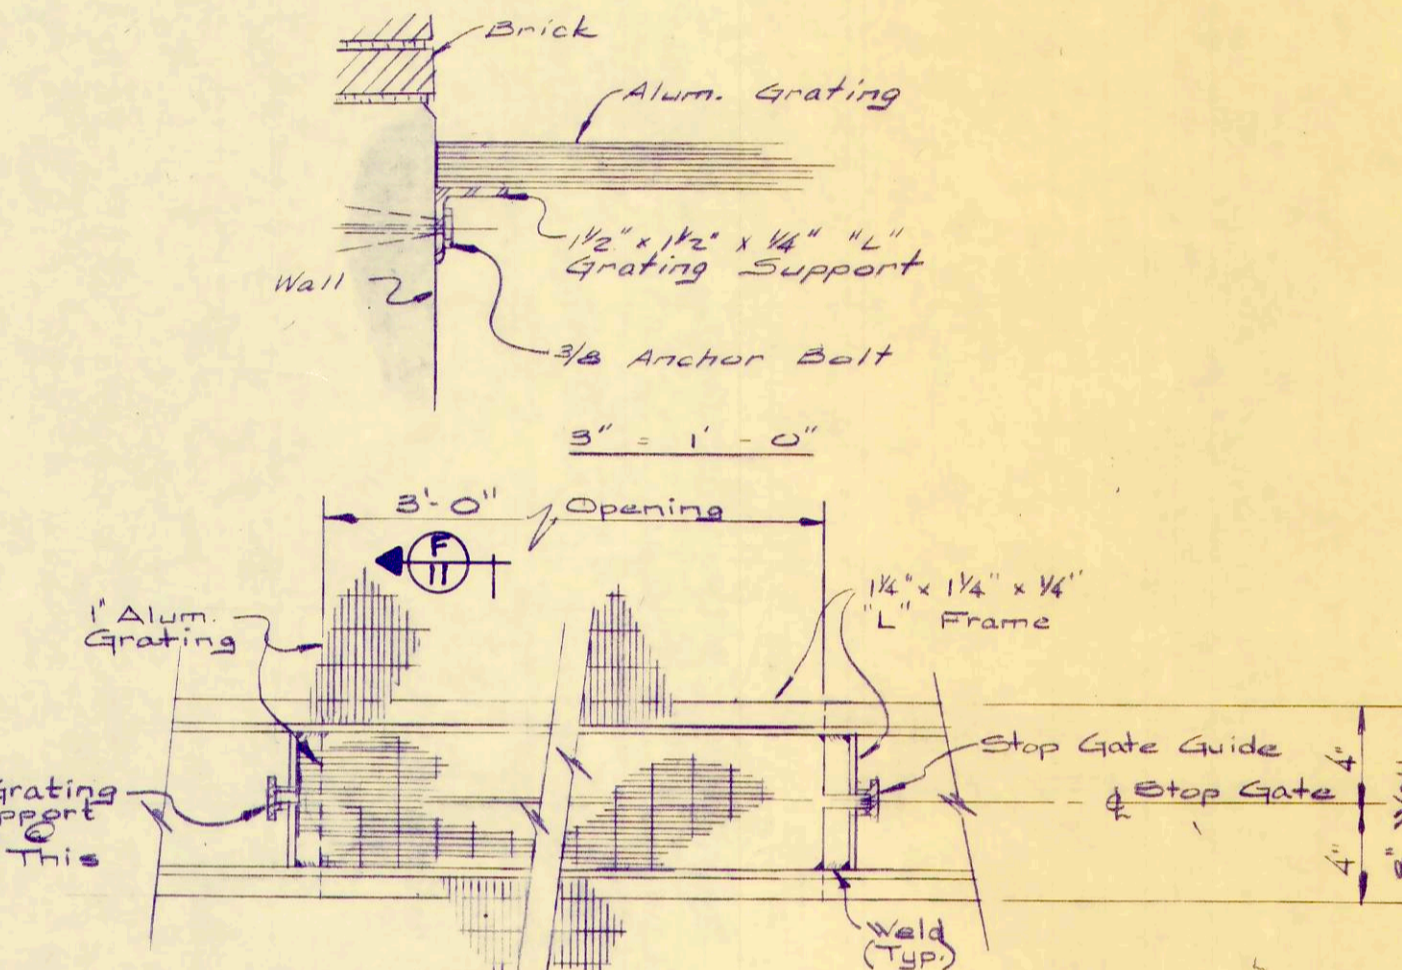 Brick
Alum. Grating
1½" x 1½" x ¼" "L"
Grating Support
Wall
3/8 Anchor Bolt
3" = 1' - 0"
3'-0" Opening
F
11
1" Alum.
Grating
1¼" x 1¼" x ¼"
"L" Frame
Stop Gate Guide
℄ Stop Gate
4"
4"
8" Wall
Grating
pport
@
This
Weld
(Typ.)